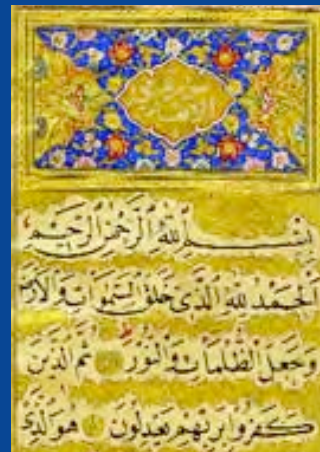 سورة
الانعام
بِسْمِ اللّٰهِ الرَّحْمٰنِ الرَّحِيمِ
اَلْحَمْدُ لِلّٰهِ الَّذِى خَلَقَ السَّمٰوَاتِ وَالْاَرْضَ
وَجَعَلَ الظُّلُمَاتِ وَالنُّورَ ثُمَّ الَّذِينَ
كَفَرُوا بِرَبِّهِمْ يَعْدِلُونَ هُوَ الَّذِى